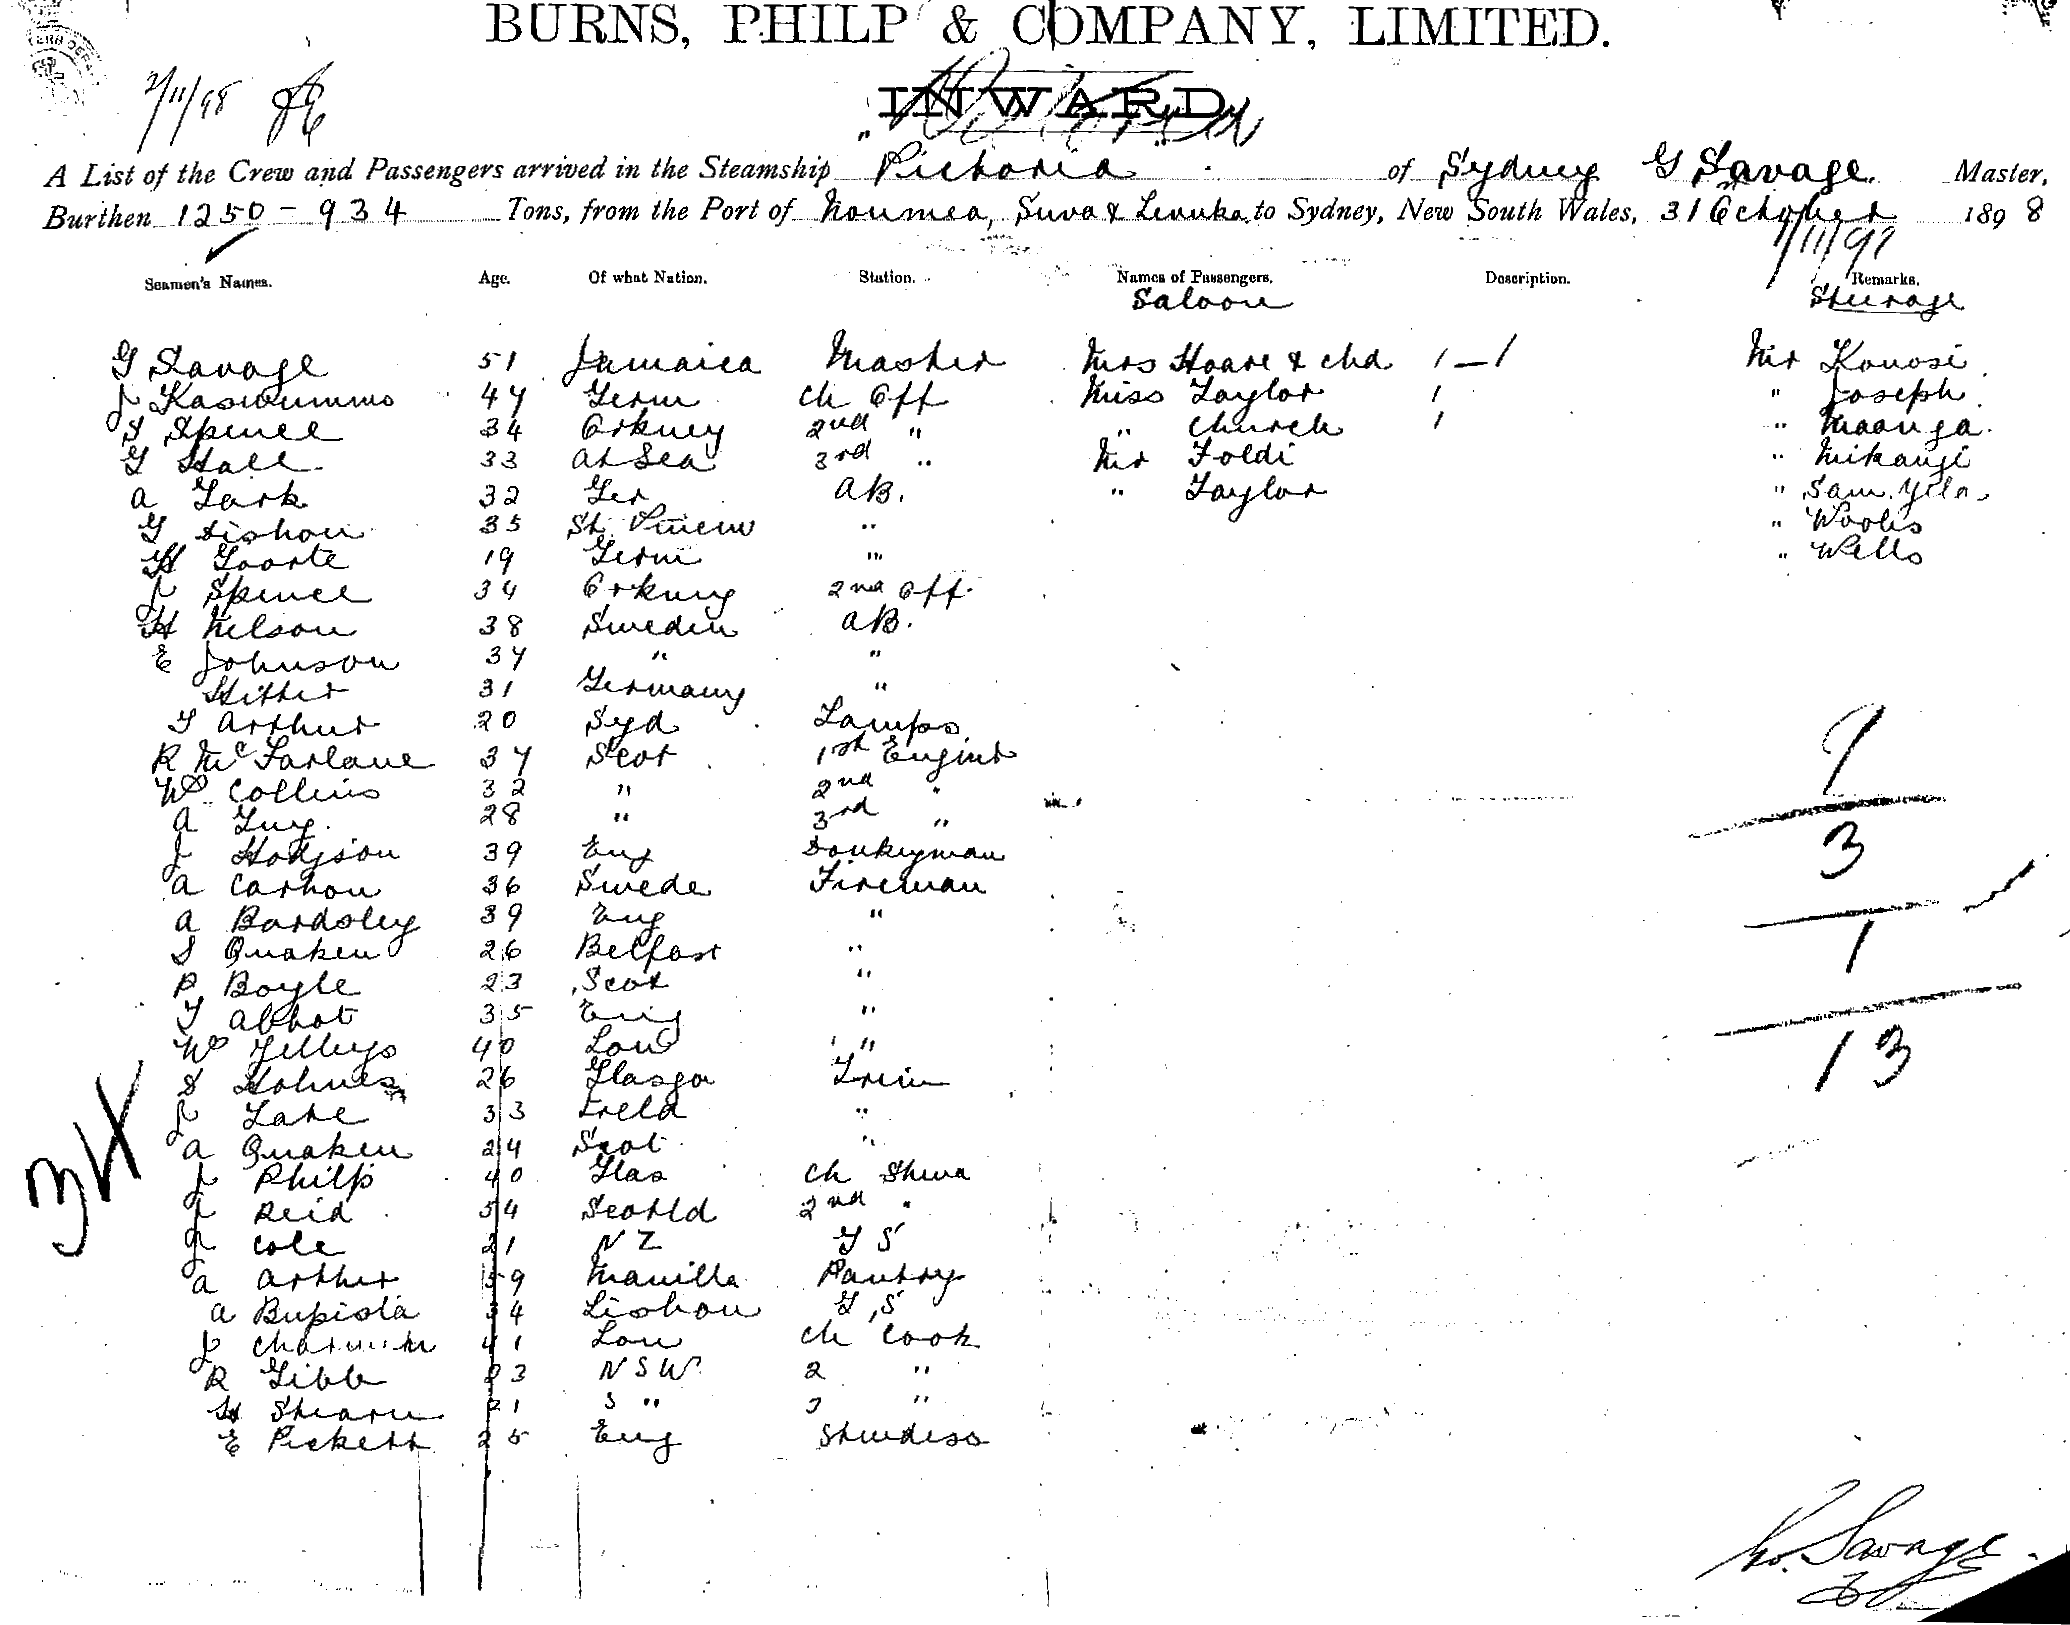 BURNS, PHILP & COMPANY, LIMITED.
2/11/98
INWARD
A List of the Crew and Passengers arrived in the Steamship Victoria of Sydney G Savage Master,
Burthen 1250 - 934 Tons, from the Port of Noumea, Suva & Levuka to Sydney, New South Wales, 31 October 1898
1/11/98
Seamen's Names. Age. Of what Nation. Station. Names of Passengers. Description. Remarks.
Saloon Steerage
G Savage 51 Jamaica Master Mrs Hoare & chd 1-1 Mr Konosi
J 47 Germ Ch Off Miss Taylor 1 " Joseph
S Spence 34 Orkney 2nd " " Church 1 " Maanga
G Hall 33 At Sea 3rd " Mr Foldi " Mikangi
A Tark 32 Ger AB. " Taylor " Sam
G Dishon 35 St " "
H Goorte 19 Germ " " Wells
J Spence 34 Orkney 2nd Off
H Nelson 38 Sweden AB.
E Johnson 37 " "
Hitter 31 Germany "
T Arthur 20 Syd Lamps
R McFarlane 37 Scot 1st Enginr
W Collins 32 " 2nd "
A Guy 28 " 3rd "
J Hodgson 39 Eng Donkeyman
A Carhon 36 Swede Fireman
A Bardsley 39 Eng "
S Quaken 26 Belfast "
P Boyle 23 Scot "
T Abbot 35 Eng "
W Jelleys 40 Lond "
S Holmes 26 Glasgo Trim
J Lake 33 Ireld "
A Quaken 24 Scot "
J Philp 40 Glas Ch Stewd
J Reid 54 Scotld 2nd "
J Cole 21 N Z G S
A Arther 59 Manilla Pantry
A Bupista 34 Lisbon G S
J 41 Lon Ch Cook
R Gibb 23 N S W 2 "
H Stearn 21 S " 3 "
E Pickett 25 Eng Stewdess
34
9
3
1
13
Geo. Savage